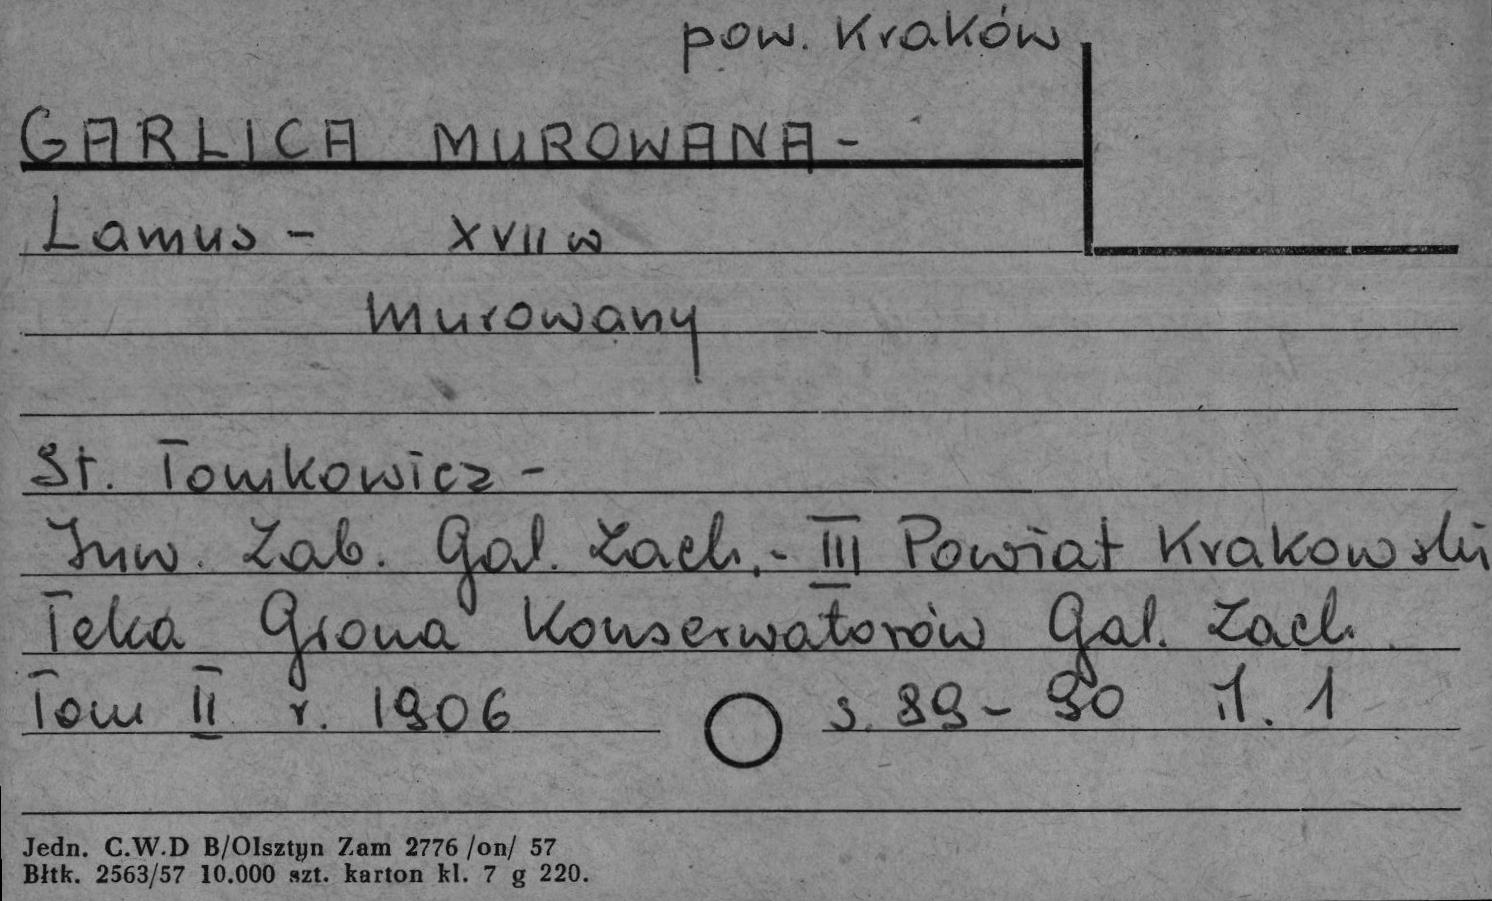 pow. Kraków
GARLICA MUROWANA -
Lamus - XVII w
Murowany
St. Tomkowicz -
Inw. Zab. Gal. Zach. - III Powiat Krakowski
Teka Grona Konserwatorów Gal. Zach.
Tom II r. 1906 s. 89 - 90 il. 1
Jedn. C.W.D B/Olsztyn Zam 2776 /on/ 57
Błtk. 2563/57 10.000 szt. karton kl. 7 g 220.